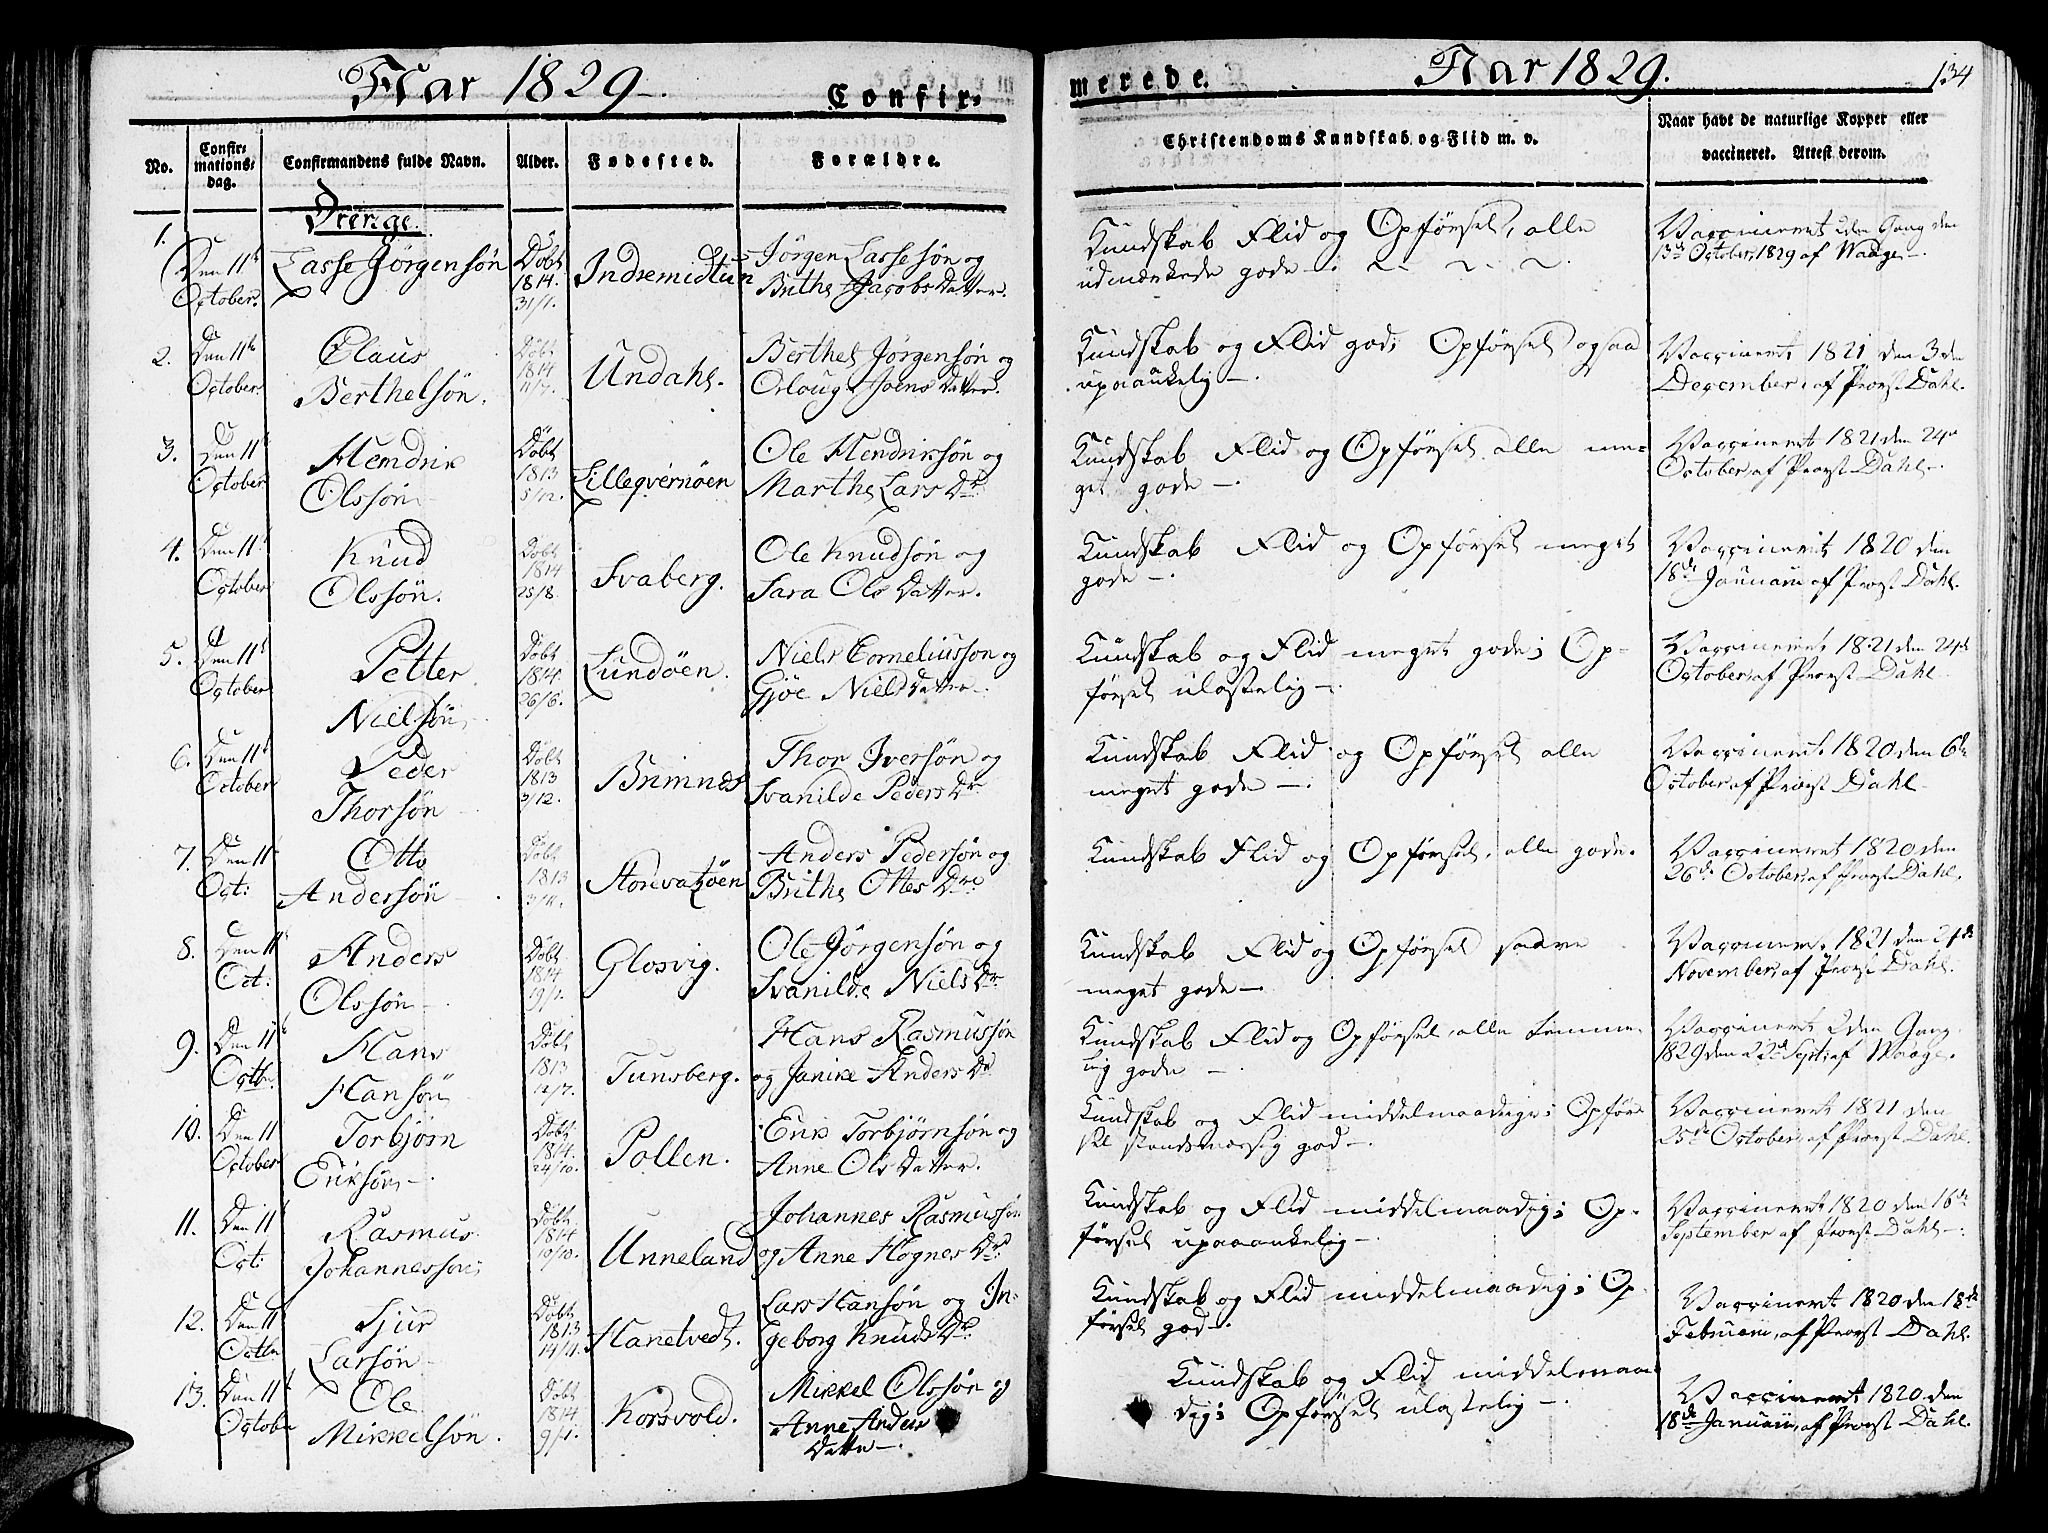 Aar 1829.
Confir-
No.
Confir-
mations-
dag.
Confirmandens fulde Navn.
Alder.
Fødested.
Forældre.
Drenge.
1.
Den 11te
October.
Lasse Jörgensön
Döbt
1814.
31/1.
Indremidtun
Jörgen Lassesön og
Brithe Jacobs Datter.
2.
Den 11te
October.
Claus
Berthelsön.
Döbt
1814
11/7.
Undahl.
Berthel Jörgensön og
Orloug Joens Datter.
3.
Den 11te
October
Hendrik
Olssön
Döbt
1813
5/12.
Lilleqvernöen
Ole Hendriksön og
Marthe Lars Dr.
4.
Den 11te
October
Knud
Olssön.
Döbt
1814
25/8.
Svaberg.
Ole Knudsön og
Sara Ols Datter.
5.
Den 11te
October
Petter
Nielsön
Döbt
1814.
26/6.
Lundöen.
Niels Corneliusson og
Gjöe Niels Datter.
6.
Den 11te
October
Peder
Thorsön
Döbt
1813
3/12.
Brimnes
Thor Iversön og
Svanilde Peders Dr.
7.
Den 11te
Oct:
Otto
Andersön
Döbt
1813
3/11.
Anders Pedersön og
Brithe Ottes Dr.
8.
Den 11te
Oct:
Anders
Olssön
Döbt
1814
19/1.
Glosvig.
Ole Jörgensön og
Svanilde Niels Dr.
9.
Den 11te
Octbr.
Hans
Hansön
Döbt
1813
12/7.
Tunsberg.
Hans Rasmussön
og Janike Anders Dr
10.
Den 11
October
Torbjörn
Eriksön
Döbt
1814.
24/10.
Pollen.
Erik Torbjörnsön og
Anne Ols Datter.
11.
Den 11te
Oct:
Rasmus
Johannesson
Döbt
1814
10/10.
Unneland
Johannes Rasmussön
og Anne Hognes Dr.
12.
Den 11te
Octbr
Sjur
Larsön
Döbt
1813
14/11.
Hanetvedt.
Lars Hansön og In-
geborg Knuds Dr.
13.
Den 11te
October
Ole
Mikkelsön.
Döbt
1814
9/1.
Korsvold.
Mikkel Olssön og
Anne Anders
Datter
merede.
Aar 1829.
134
Christendoms Kundskab og Flid m. v.
Naar havt de naturlige Kopper eller
vaccineret. Attest derom.
Kundskab Flid og Opförsel, alle
udmærkede gode
Vaccineret 2den Gang den
13de October 1829 af Waage.
Kundskab og Flid god; Opförsel ogsaa
upaaankelig
Vaccineret 1821 den 3die
December, af Provst Dahl.
Kundskab Flid og Opförsel alle me-
get gode
Vaccineret 1821 den 24de
October, af Provst Dahl.
Kundskab Flid og Opförsel meget
gode
Vaccineret 1820 den
18de Januarii af Provst Dahl.
Kundskab og Flid meget gode; Op-
försel ulastelig
Vaccineret 1821 den 24de
October, af Provst Dahl
Kundskab Flid og Opförsel alle
meget gode
Vaccineret 1820 den 6te
October af Provst Dahl
Kundskab Flid og Opförsel, alle gode.
Vaccineret 1820 den
26de October, af Provst Dahl.
Kundskab Flid og Opförsel
meget gode
Vaccineret 1821 den 21de
November, af Provst Dahl.
Kundskab Flid og Opförsel, alle temme-
lig gode
Vaccineret 2den Gang
1829 den 22de Sept: af Waage.
Kundskab og Flid middelmaadige; Opför-
sel standsmæssig god
Vaccineret 1821 den
25de October, af Provst Dahl.
Kundskab og Flid middelmaadig; Op-
försel upaaankelig
Vaccineret 1820 den 16de
September af Provst Dahl
Kundskab og Flid middelmaadig; Op-
försel god
Vaccineret 1820 den 18de
Februarii, af Provst Dahl.
Kundskab og Flid middelmaa-
dig; Opförsel ulastelig
Vaccineret 1820 den
18de Januarii, af Provst Dahl.